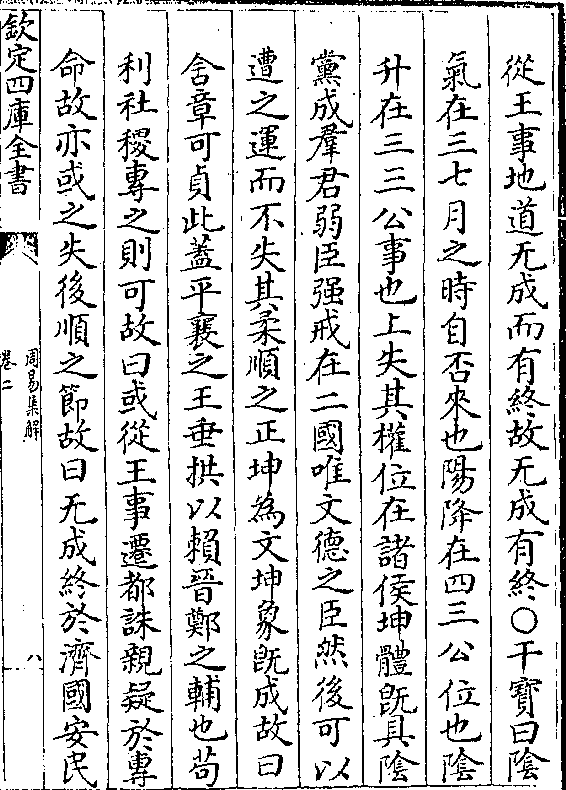 從王事地道无成而有終故无成有終○干寳曰陰
氣在三七月之時自否來也陽降在四三公位也陰
升在三三公事也上失其權位在諸侯坤體既具陰
黨成羣君弱臣强戒在二國唯文德之臣然後可以
遭之運而不失其柔順之正坤為文坤象既成故曰
含章可貞此蓋平襄之王垂拱以賴晉鄭之輔也苟
利社稷專之則可故曰或從王事遷都誅親疑於專
命故亦或之失後順之節故曰无成終於濟國安民
欽定四庫全書
周易集解
卷二
八